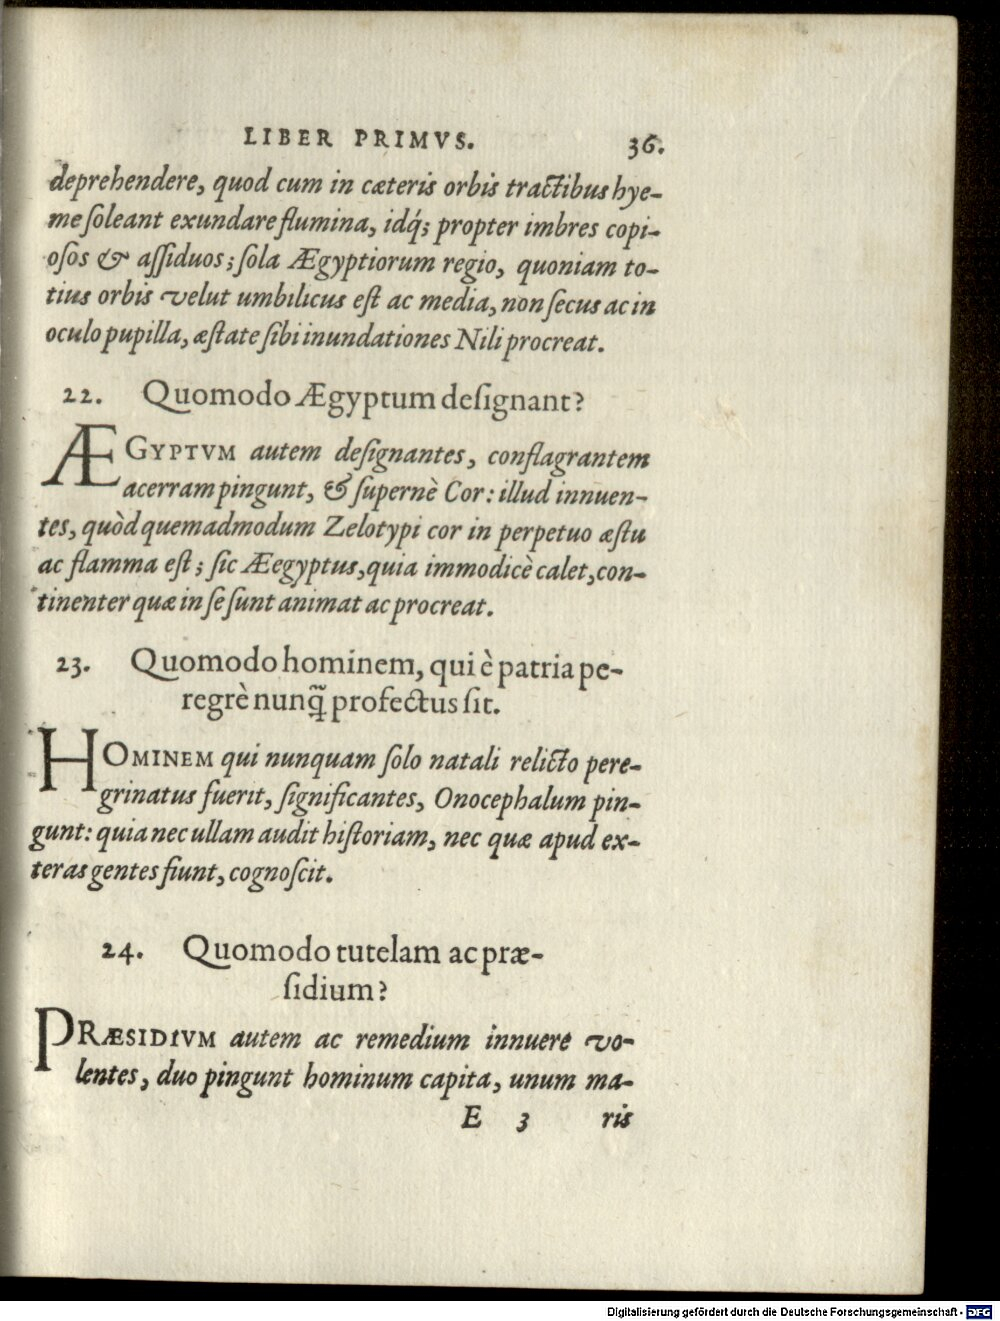 LIBER PRIMVS. 36.
deprehendere, quod cum in cæteris orbis tractibus hye-
me ſoleant exundare flumina, idq́; propter imbres copi-
oſos & aſſiduos; ſola Ægyptiorum regio, quoniam to-
tius orbis velut umbilicus eſt ac media, non ſecus ac in
oculo pupilla, æſtate ſibi inundationes Nili procreat.
22. Quomodo Ægyptum deſignant?
ÆGYPTVM autem deſignantes, conflagrantem
acerram pingunt, & ſupernè Cor: illud innuen-
tes, quòd quemadmodum Zelotypi cor in perpetuo æſtu
ac flamma eſt; ſic Æegyptus, quia immodicè calet, con-
tinenter quæ in ſe ſunt animat ac procreat.
23. Quomodo hominem, qui è patria pe-
regrè nunq̃ profectus ſit.
HOMINEM qui nunquam ſolo natali relicto pere-
grinatus fuerit, ſignificantes, Onocephalum pin-
gunt: quia nec ullam audit hiſtoriam, nec quæ apud ex-
teras gentes fiunt, cognoſcit.
24. Quomodo tutelam ac præ-
ſidium?
PRÆSIDIVM autem ac remedium innuere vo-
lentes, duo pingunt hominum capita, unum ma-
E 3 ris
Digitalisierung gefördert durch die Deutsche Forschungsgemeinschaft - DFG